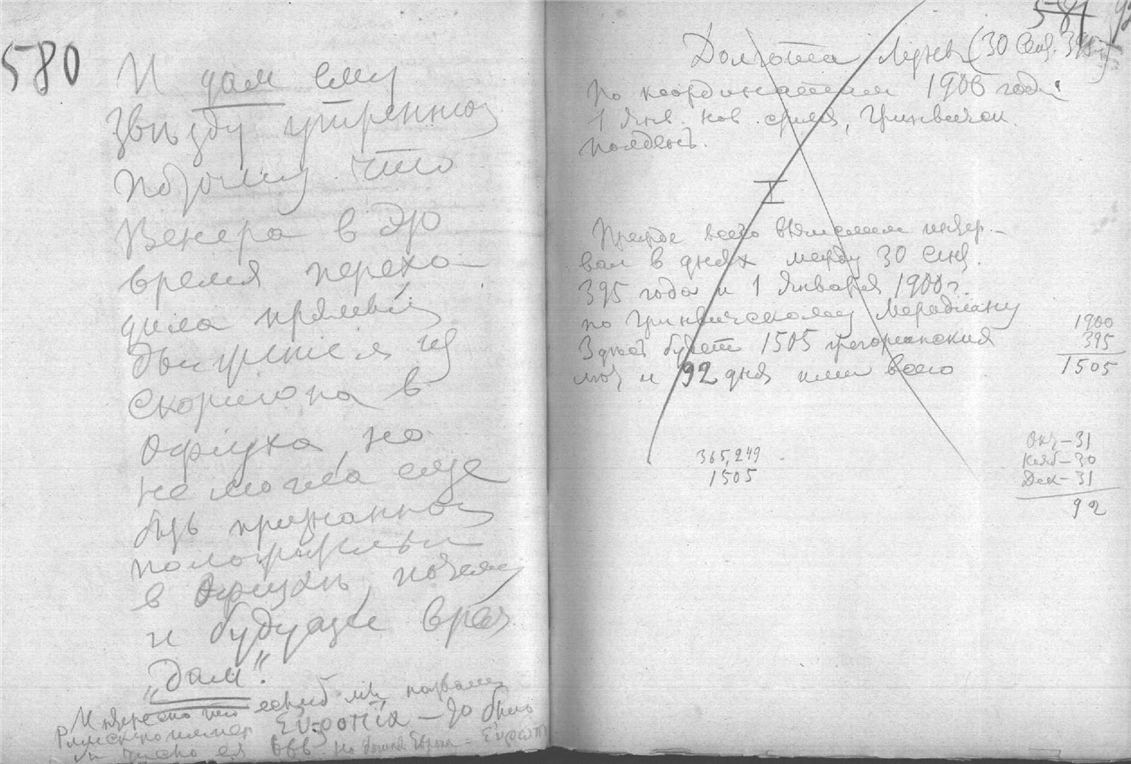 580
И дам ему
звѣзду утреннюю
потому что
Венера в это
время перехо-
дила прямым
движением из
Скорпиона в
Офиуха, но
не могла еще
быть признанной
положительно
в Офиухѣ, почему
и будущее врем.
„Дам“.
Интересно что если б мы назвали
581
Долгота Луны (30 Сент. 395
По координатам 1900 года
1 Янв. нов. стиля, Гринвичск.
полдень.
I
Прежде всего вычислим интер-
вал в днях между 30 Сент.
395 года и 1 Января 1900 г.
по Гринвическому Меридиану
Здесь будет 1505 грегорианских
лет и 92 дня или всего
1900
395
1505
365,249
1505
Окт-31
Нояб-30
Дек-31
92